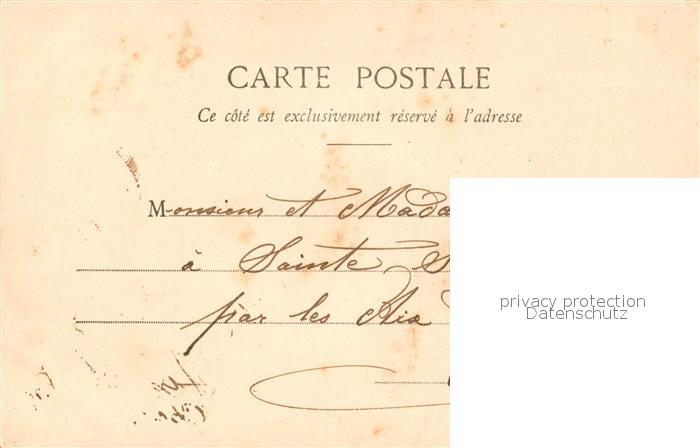 CARTE POSTALE
Ce côté est exclusivement réservé à l'adresse
Monsieur et Mada
à Sainte S
par les Aix
privacy protection
Datenschutz